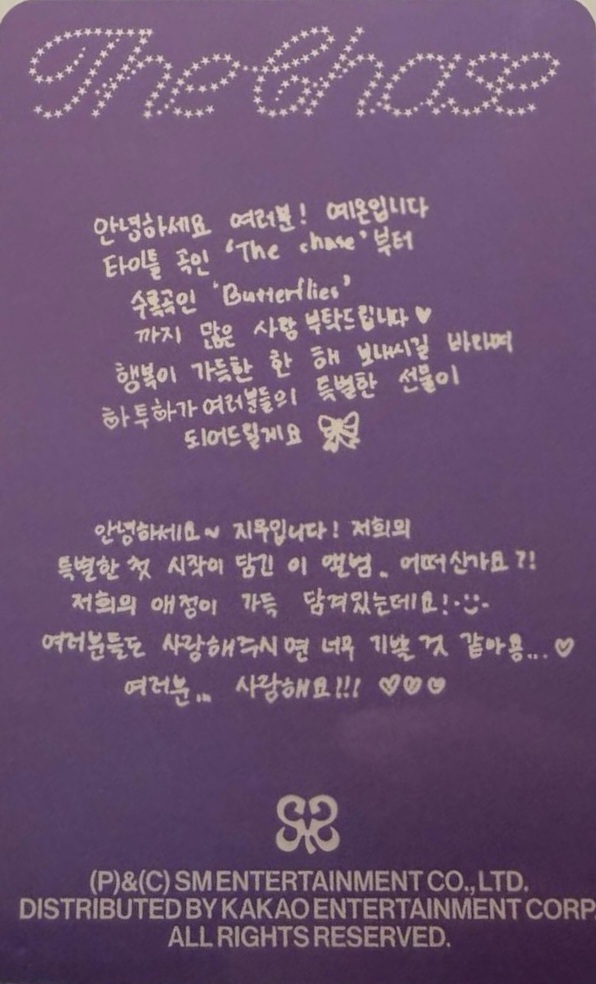 The Chase
안녕하세요 여러분! 예온입니다
타이틀 곡인 'The chase'부터
수록곡인 'Butterflies'
까지 많은 사랑 부탁드립니다♥
행복이 가득한 한 해 보내시길 바라며
하투하가 여러분들의 특별한 선물이
되어드릴게요
안녕하세요~ 지우입니다! 저희의
특별한 첫 시작이 담긴 이 앨범.. 어떠신가요?!
저희의 애정이 가득 담겨있는데요!
여러분들도 사랑해주시면 너무 기쁠 것 같아용...♡
여러분... 사랑해요!!! ♡♡♡
(P)&(C) SM ENTERTAINMENT CO., LTD.
DISTRIBUTED BY KAKAO ENTERTAINMENT CORP.
ALL RIGHTS RESERVED.